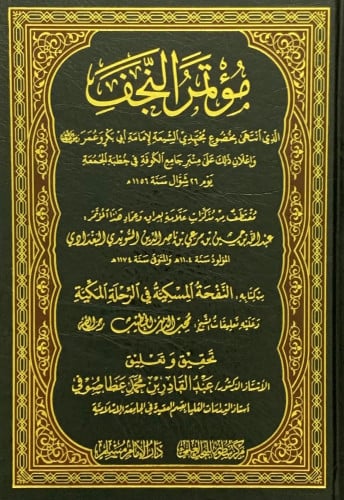 مؤتمر النجف
الذي انتهى بخضوع مجتهدي الشيعة لإمامة أبي بكر وعمر رضي الله عنهما
وإعلان ذلك على منبر جامع الكوفة في خطبة الجمعة
يوم ٢٦ شوال سنة ١١٥٦هـ
مقتطف من مذكرات علامة العراق وعماد هذا المؤتمر،
عبد الله بن حسين بن مرعي بن ناصر الدين السويدي البغدادي
المولود سنة ١١٠٤هـ والمتوفى سنة ١١٧٤هـ
من كتابه: النفحة المسكية في الرحلة المكية
وعليه تعليقات للشيخ: محب الدين الخطيب رحمه الله
تحقيق وتعليق
الأستاذ الدكتور/ عبد القادر بن محمد عطا صوفي
أستاذ الدراسات العليا بقسم العقيدة في الجامعة الإسلامية
دار الإمام مسلم